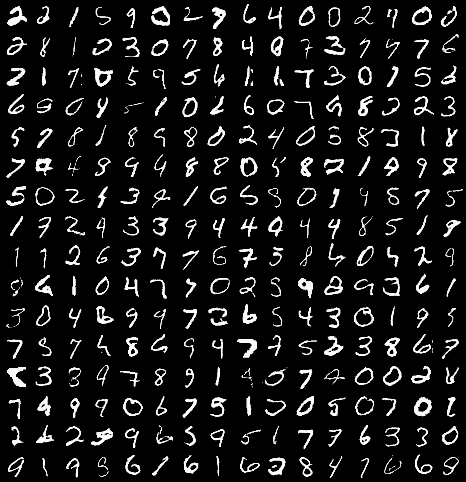 2 2 1 5 9 0 2 9 6 4 0 0 2 4 0 0
2 8 1 0 3 0 7 8 4 0 7 3 7 7 7 6
2 1 7 0 5 9 5 6 1 1 7 3 0 1 5 3
6 9 0 4 5 1 0 2 6 0 7 9 8 2 2 3
5 7 8 1 8 9 8 0 2 4 0 5 8 3 1 8
7 4 9 9 4 8 8 0 5 8 2 1 9 9 8
5 0 2 4 3 4 1 6 5 9 0 9 4 8 7 5
1 7 2 9 3 3 9 4 4 0 4 4 8 5 1 9
1 1 2 6 3 7 7 6 7 5 8 6 0 4 2 9
8 6 1 0 4 7 7 0 2 5 9 8 9 3 6 1
3 0 4 6 9 9 7 2 6 5 4 3 0 1 9 5
7 5 7 4 8 6 9 4 7 7 5 3 3 8 6 7
3 3 9 7 8 9 1 4 0 7 4 0 0 2 8
7 4 9 9 0 6 7 5 1 0 0 5 0 7 0 1
2 6 2 9 6 5 9 5 1 7 7 6 3 3 0
9 1 9 5 6 1 6 1 6 2 8 4 7 6 6 8